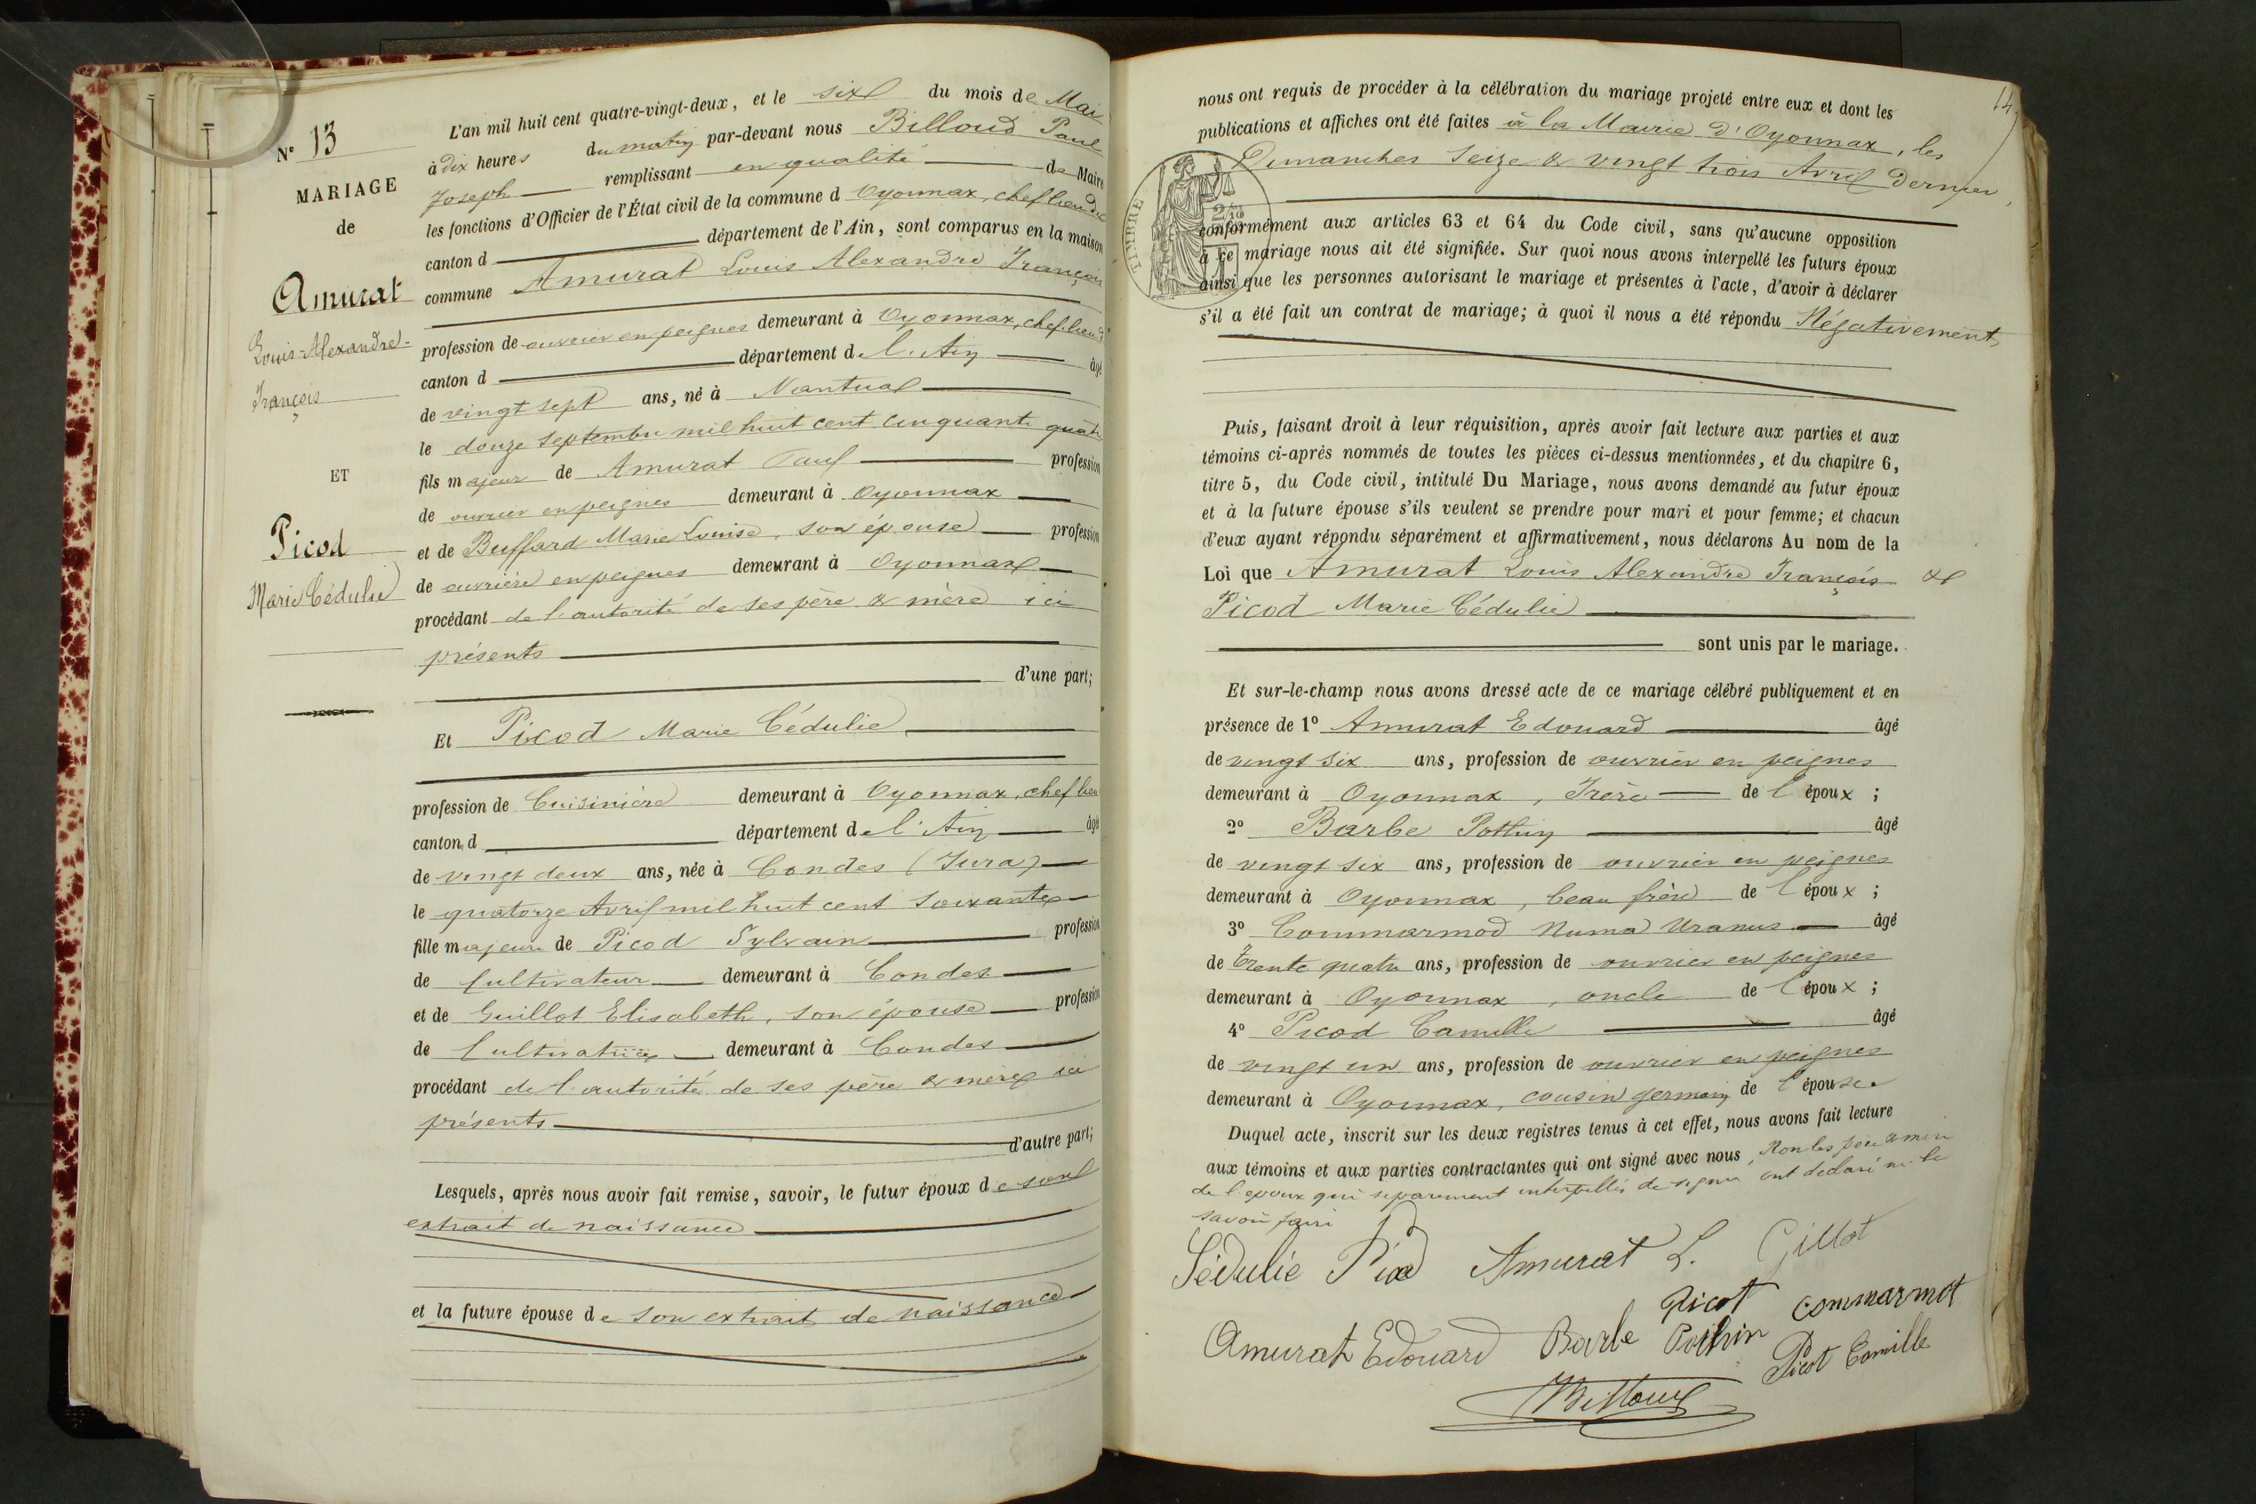 N° 13
MARIAGE
de
Amurat
Louis-Alexandre-
François
ET
Picod
Marie Cédulie
L'an mil huit cent quatre-vingt-deux, et le six du mois de Mai
à dix heures du matin par-devant nous Billoud Paul
Joseph remplissant en qualité de Maire
les fonctions d'Officier de l'État civil de la commune d Oyonnax, chef lieu de
canton d département de l'Ain, sont comparus en la maison
commune Amurat Louis Alexandre François
profession de ouvrier en peignes demeurant à Oyonnax, chef lieu de
canton d département de l'Ain âgé
de vingt sept ans, né à Nantua
le douze septembre mil huit cent cinquante quatre
fils majeur de Amurat Paul profession
de ouvrier en peignes demeurant à Oyonnax
et de Buffard Marie Louise, son épouse profession
de ouvrière en peignes demeurant à Oyonnax
procédant de l'autorité de ses père & mère ici
présents
d'une part;
Et Picod Marie Cédulie
profession de Cuisinière demeurant à Oyonnax, chef lieu
canton d département de l'Ain âgé
de vingt deux ans, née à Condes (Jura)
le quatorze Avril mil huit cent soixante
fille majeure de Picod Sylvain profession
de Cultivateur demeurant à Condes
et de Guillot Elisabeth, son épouse profession
de Cultivatrice demeurant à Condes
procédant de l'autorité de ses père & mère ici
présents
d'autre part;
Lesquels, après nous avoir fait remise, savoir, le futur époux de son
extrait de naissance
et la future épouse de son extrait de naissance
14
nous ont requis de procéder à la célébration du mariage projeté entre eux et dont les
publications et affiches ont été faites à la Mairie d'Oyonnax, les
Dimanches seize & vingt trois Avril dernier,
TIMBRE
conformément aux articles 63 et 64 du Code civil, sans qu'aucune opposition
à ce mariage nous ait été signifiée. Sur quoi nous avons interpellé les futurs époux
ainsi que les personnes autorisant le mariage et présentes à l'acte, d'avoir à déclarer
s'il a été fait un contrat de mariage; à quoi il nous a été répondu Négativement
Puis, faisant droit à leur réquisition, après avoir fait lecture aux parties et aux
témoins ci-après nommés de toutes les pièces ci-dessus mentionnées, et du chapitre 6,
titre 5, du Code civil, intitulé Du Mariage, nous avons demandé au futur époux
et à la future épouse s'ils veulent se prendre pour mari et pour femme; et chacun
d'eux ayant répondu séparément et affirmativement, nous déclarons Au nom de la
Loi que Amurat Louis Alexandre François &
Picod Marie Cédulie
sont unis par le mariage.
Et sur-le-champ nous avons dressé acte de ce mariage célébré publiquement et en
présence de 1° Amurat Edouard âgé
de vingt six ans, profession de ouvrier en peignes
demeurant à Oyonnax, Frère de l'époux ;
2° Barbe Pothin âgé
de vingt six ans, profession de ouvrier en peignes
demeurant à Oyonnax, beau frère de l'époux ;
3° Commarmod Numa Uranus âgé
de Trente quatre ans, profession de ouvrier en peignes
demeurant à Oyonnax, oncle de l'époux ;
4° Picod Camille âgé
de vingt un ans, profession de ouvrier en peignes
demeurant à Oyonnax, cousin germain de l'épouse
Duquel acte, inscrit sur les deux registres tenus à cet effet, nous avons fait lecture
aux témoins et aux parties contractantes qui ont signé avec nous, Non les père & mère
de l'époux qui séparément interpellés de signer ont déclaré ne le
savoir faire
Sédulie Picod Amurat L. Gillot
Picot commarmot
Amurat Edouard Barbe Pothin
Picot Camille
Billoud